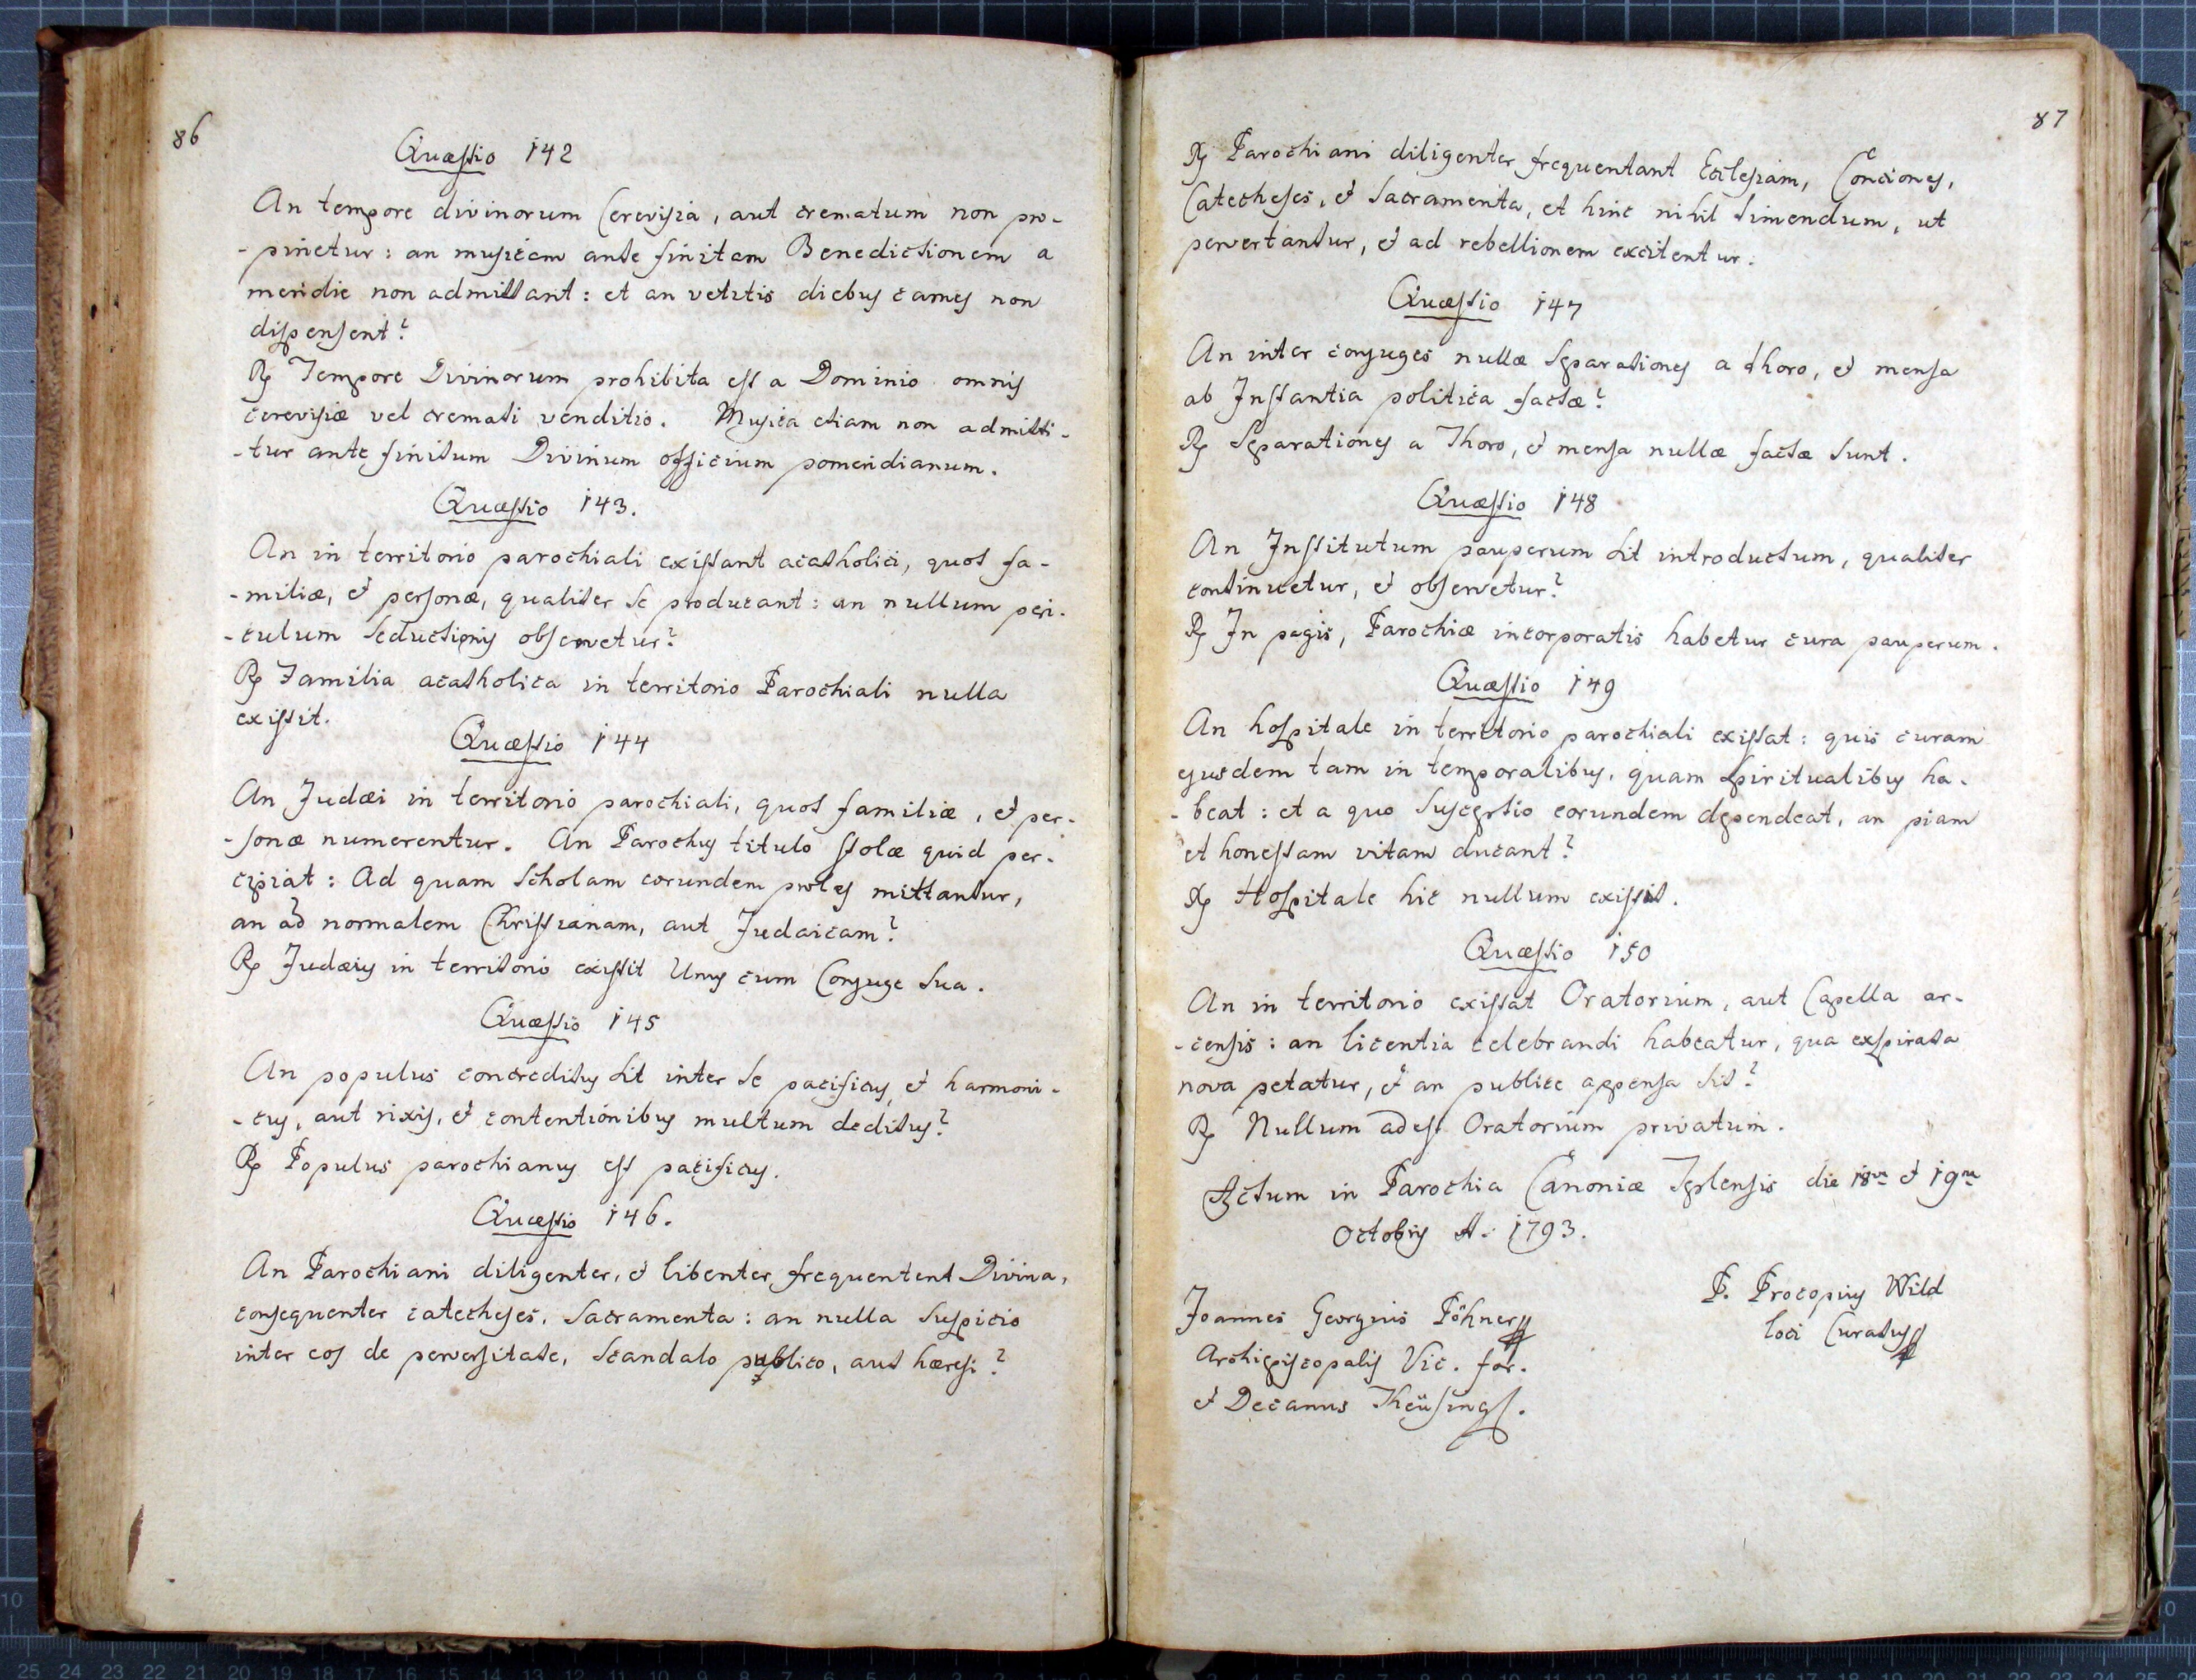 86
Quæstio 142
An tempore divinorum Cerevisia, aut crematum non pro-
-pinetur: an musicam ante finitam Benedictionem a
meridie non admittant: et an vetitis diebus carnes non
dispensent?
℟ Tempore Divinorum prohibita est a Dominio omnis
cerevisiæ vel cremati venditio. Musica etiam non admitti-
-tur ante finitum Divinum officium pomeridianum.
Quæstio 143.
An in territorio parochiali existant acatholici, quot fa-
-miliæ, et personæ, qualiter se producant: an nullum peri-
-culum seductionis observetur?
℟ Familia acatholica in territorio Parochiali nulla
existit.
Quæstio 144
An Judæi in territorio parochiali, quot familiæ, et per-
-sonæ numerentur. An Parochus titulo stolæ quid per-
cipiat: Ad quam Scholam eorundem proles mittantur,
an ad normalem Christianam, aut Judaicam?
℟ Judæus in territorio existit Unus cum Conjuge sua.
Quæstio 145
An populus concreditus sit inter se pacificus, et harmoni-
-cus, aut rixis, et contentionibus multum deditus?
℟ Populus parochianus est pacificus.
Quæstio 146.
An Parochiani diligenter, et libenter frequentent Divina,
consequenter catecheses, Sacramenta: an nulla suspicio
inter eos de perversitate, scandalo publico, aut hæresi?
87
℟ Parochiani diligenter frequentant Ecclesiam, Conciones,
Catecheses, et Sacramenta, et hinc nihil timendum, ut
pervertantur, et ad rebellionem excitentur.
Quæstio 147
An inter conjuges nullæ separationes a thoro, et mensa
ab Instantia politica factæ?
℟ Separationes a Thoro, et mensa nullæ factæ sunt.
Quæstio 148
An Institutum pauperum sit introductum, qualiter
continuetur, et observetur?
℟ In pagis, Parochiæ incorporatis habetur cura pauperum.
Quæstio 149
An hospitale in territorio parochiali existat: quis curam
ejusdem tam in temporalibus, quam spiritualibus ha-
-beat: et a quo susceptio eorundem dependeat, an piam
et honestam vitam ducant?
℟ Hospitale hic nullum existit.
Quæstio 150
An in territorio existat Oratorium, aut Capella ar-
-censis: an licentia celebrandi habeatur, qua exspirata
nova petatur, et an publice appensa sit?
℟ Nullum adest Oratorium privatum.
Actum in Parochia Canoniæ Teplensis die 18va et 19na
Octobris A. 1793.
P. Procopius Wild
loci Curatus
Joannes Georgius Pöhner
Archiepiscopalis Vic. for.
et Decanus